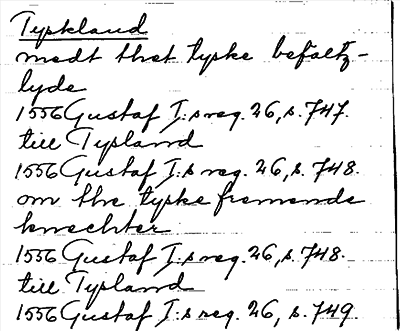 Tyskland
medt thet tyske befaltz-
lyde
1556 Gustaf I:s reg. 26, s. 747.
till Tyskland
1556 Gustaf I:s reg. 26, s. 748.
om the tyske fremende
knechter
1556 Gustaf I:s reg. 26, s. 748.
till Tyskland
1556 Gustaf I:s reg. 26, s. 749.